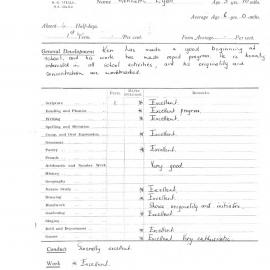 Name Kenneth Lyon Age 5 yrs. 10 mths.
Average Age 6 yrs. 0 mths.
Absent Half-days.
Term Per cent. Form Average Per cent.
General Development Ken has made a good beginning at
school, and his work has made rapid progress. He is keenly
interested in all school activities, and his originality and
concentration are
Form Remarks
Scripture Excellent.
Reading and Phonics Excellent progress.
Writing Excellent.
Spelling and Dictation
Comp. and Oral Expression Excellent.
Grammar
Poetry Excellent.
French
Arithmetic and Number Work Very good
History
Geography
Nature Study Excellent.
Drawing Excellent.
Handwork Shows originality and initiative.
Gardening Excellent.
Singing Excellent.
Drill and Deportment Excellent.
Games Excellent Very enthusiastic
Conduct Generally excellent.
Work Excellent.